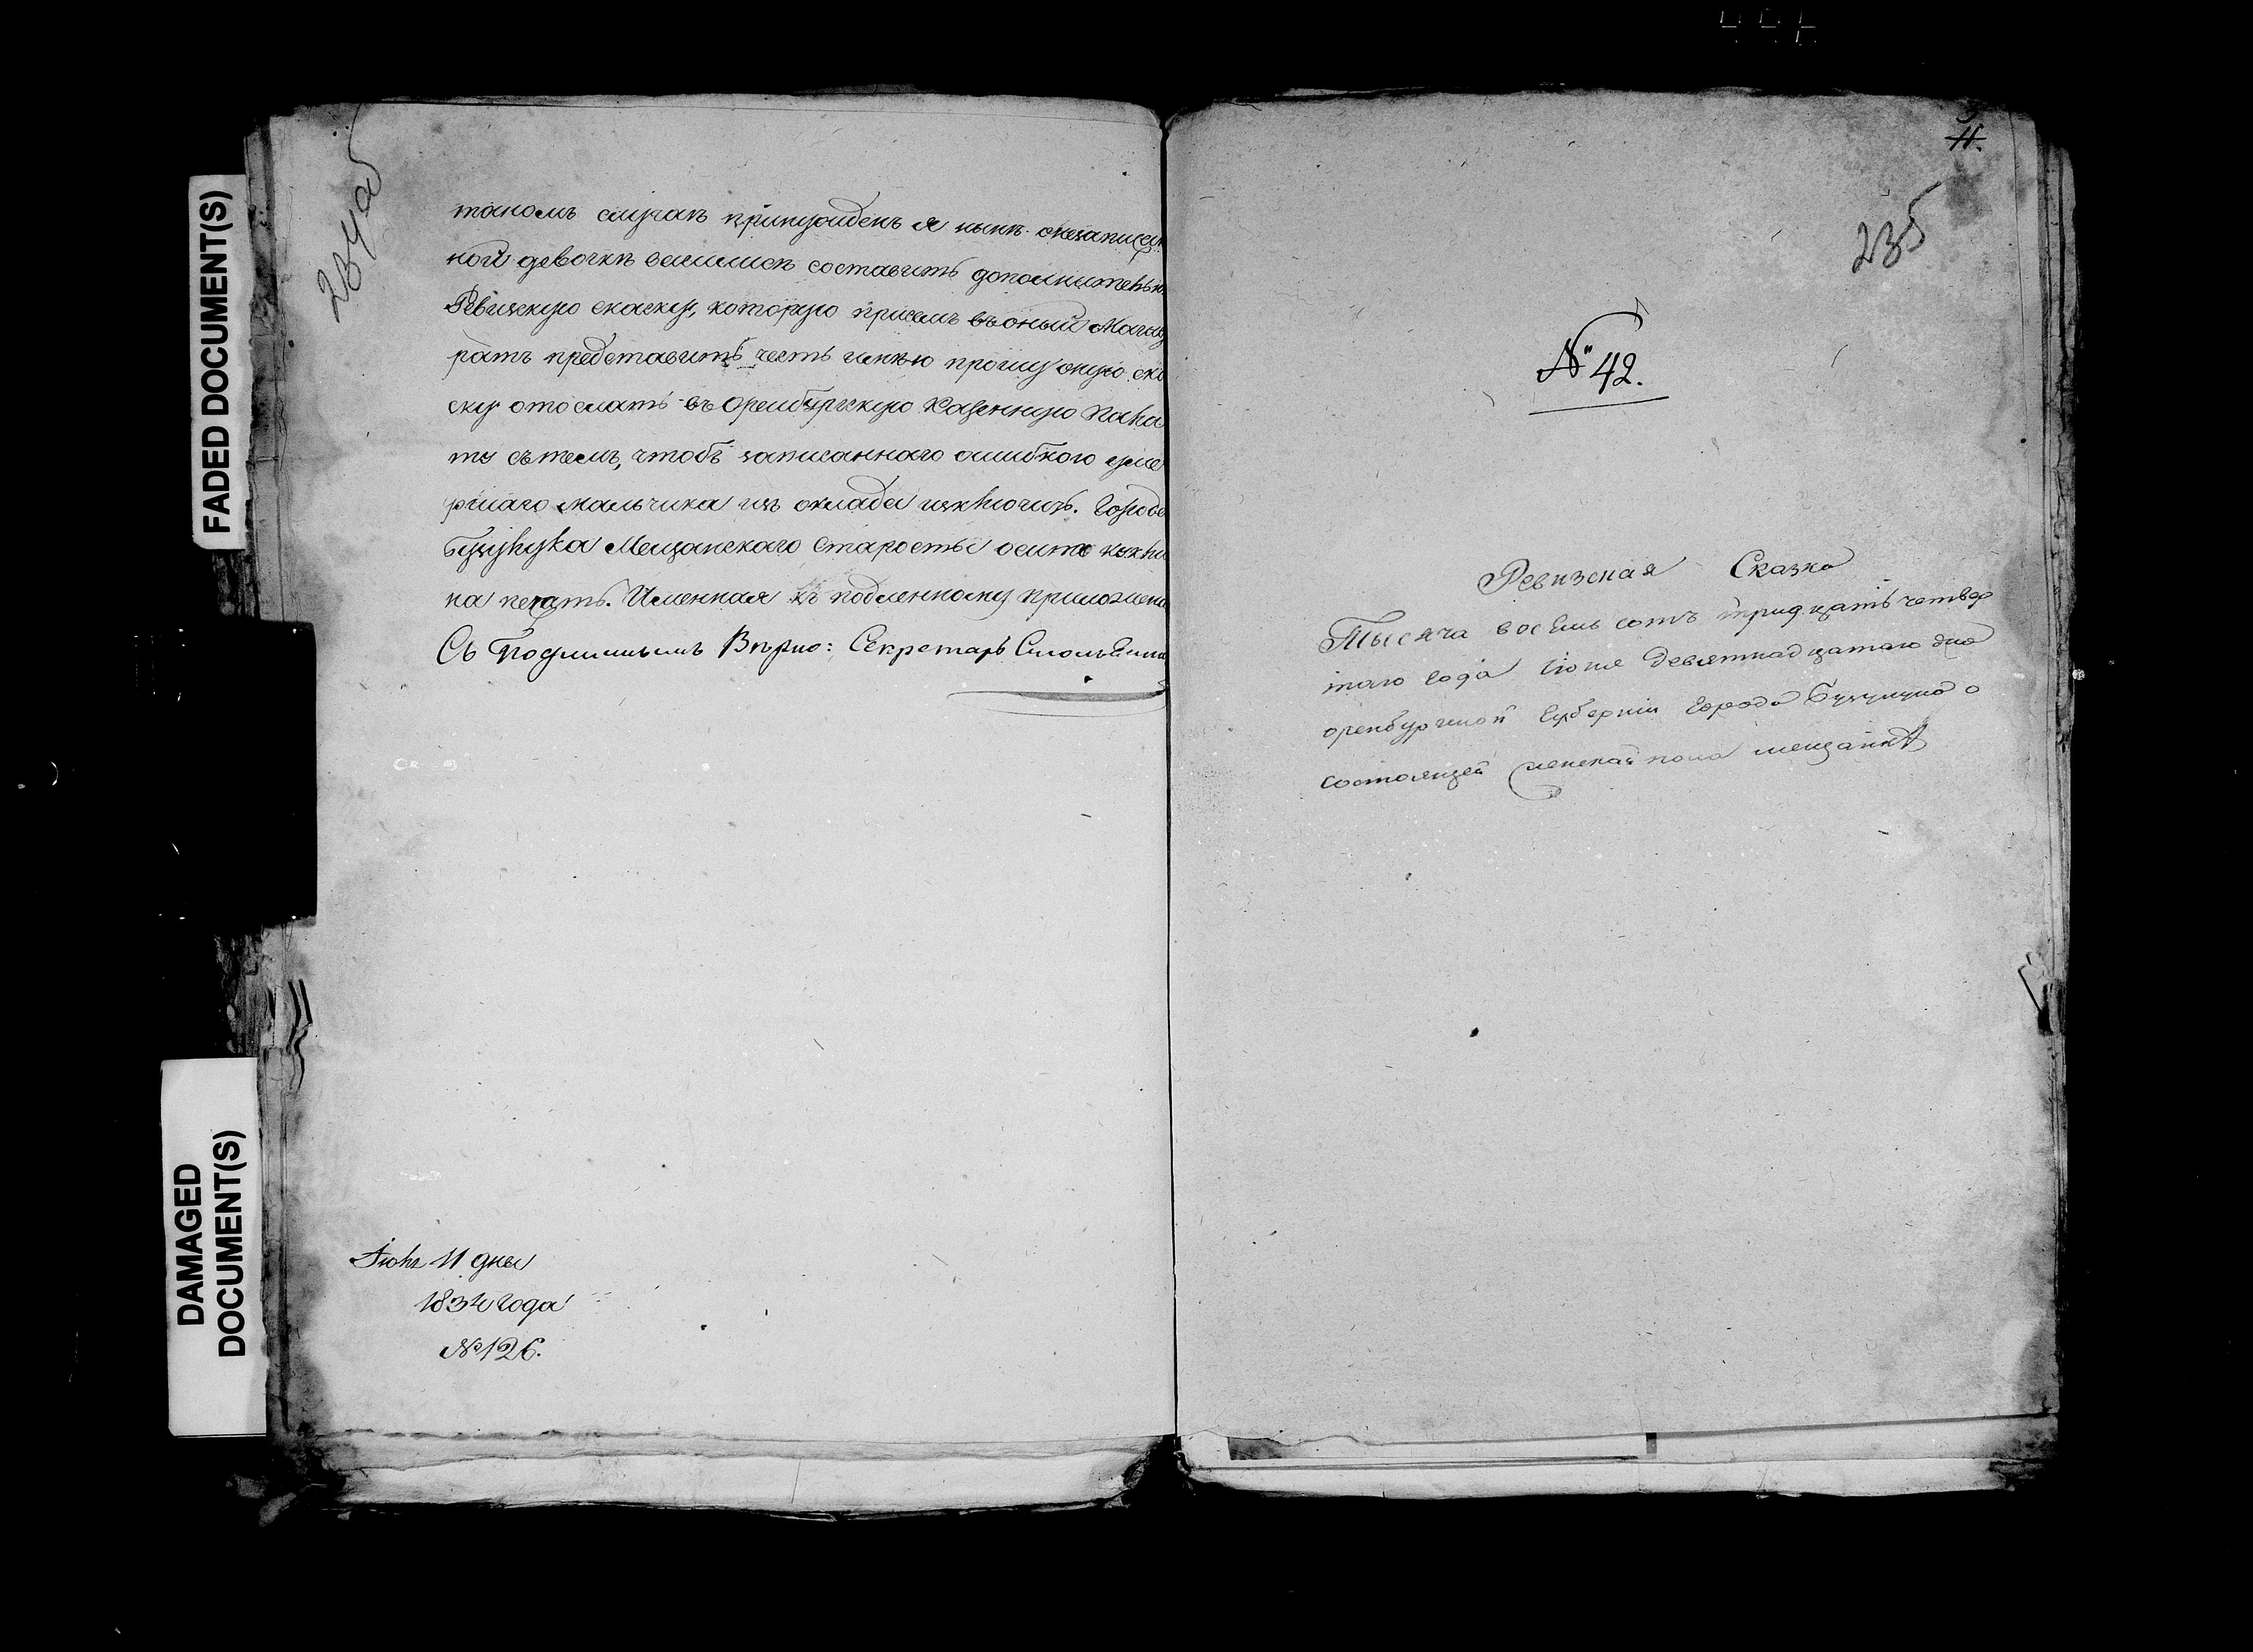 FADED DOCUMENT(S)
DAMAGED
DOCUMENT(S)
234 об
такомъ случаѣ принужденъ я нынѣ онезаписан
ной девочкѣ составить дополнительн
Ревизскую скаску, которую присемъ въоный Магис
ратъ представить честь имѣю прошу оную ска
ску отослать въ оренбургскую Казенную Пала
ту сътемъ, чтобъ записаннаго ошибкою уме
ршаго мальчика изъ оклада изключить. Города
Бузулука Мещанскаго Старосты осипа
на печать. Именная къ подленному приложена
Съ Подлиннымъ Вѣрно: Секретарь
Июля 11 дня
1834 года
№ 126.
11.
235
№ 42.
Ревизская Сказка
Тысяча восемь сотъ тридцать четвер
таго года Июня Девятнадцатаго дня
оренбургской Губернии Города Бузулука о
состоящей женскаго пола мещанкѣ